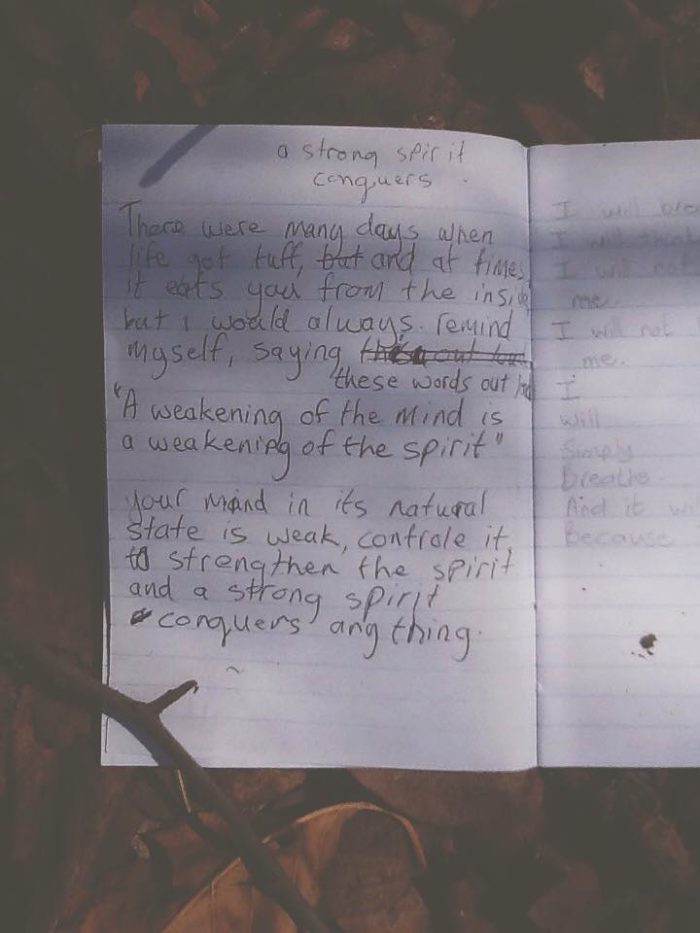 a strong spirit
conquers
There were many days when
life got tuff, but and at times
it eats you from the inside
but i would always remind
myself, saying
these words out
"A weakening of the mind is
a weakening of the spirit"
your mind in its natural
state is weak, controle it
to strengthen the spirit
and a strong spirit
conquers any thing.
I will
I will think
I will not
me.
I will not
me.
I
will
Simply
Breathe
And it
because